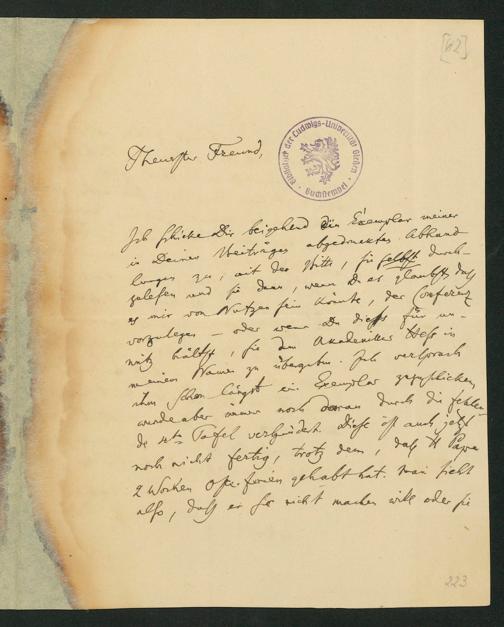 [62]
Bibliothek der Ludwigs-Universität Giessen
Buchstempel
Theuerster Freund,
Ich schicke Dir beigehend ein Exemplar meiner
in Deinen Beiträgen abgedruckten Abhand
lungen zu, mit der Bitte, sie selbst durch-
zulesen und sie dann, wenn Du es glaubst, daß
es mir von Nutzen sein könnte, der Conferenz
vorzulegen – oder wenn Du dieß für un-
nütz hältst, sie dem Akademiker Heß in
meinem Namen zu übergeben. Ich versprach
ihm schon längst ein Exemplar zuzuschicken,
wurde aber immer noch daran durch die fehlen
de 4te Tafel verhindert. Diese ist auch jetzt
noch nicht fertig, trotz dem, daß H Pape
2 Wochen Ferien gehabt hat. Man sieht
also, daß er sie nicht machen will oder sie
223